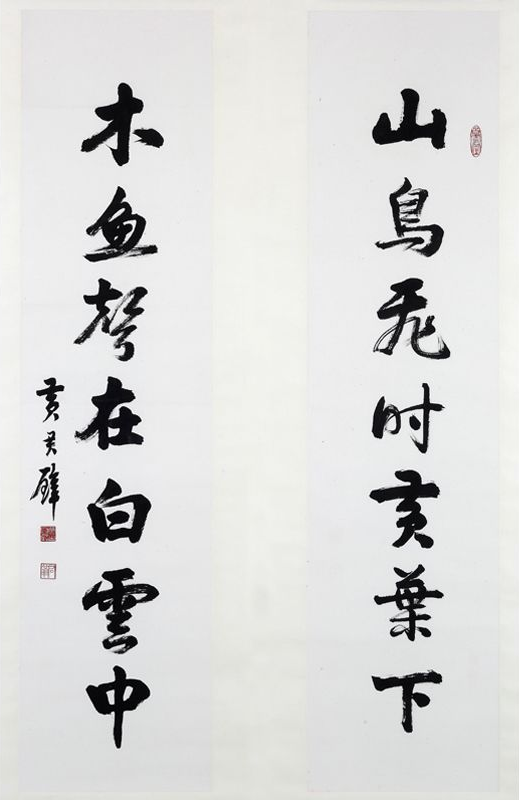 山鳥飛时黃葉下
木魚聲在白雲中
黃君璧